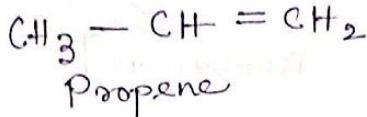 CH3 — CH = CH2
Propene